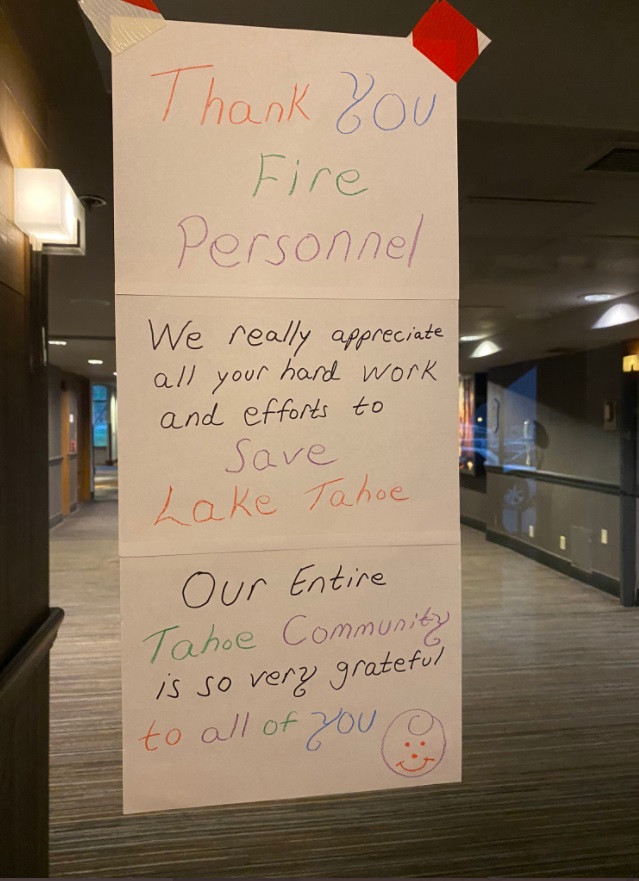 Thank You
Fire
Personnel
We really appreciate
all your hard work
and efforts to
Save
Lake Tahoe
Our Entire
Tahoe Community
is so very grateful
to all of you